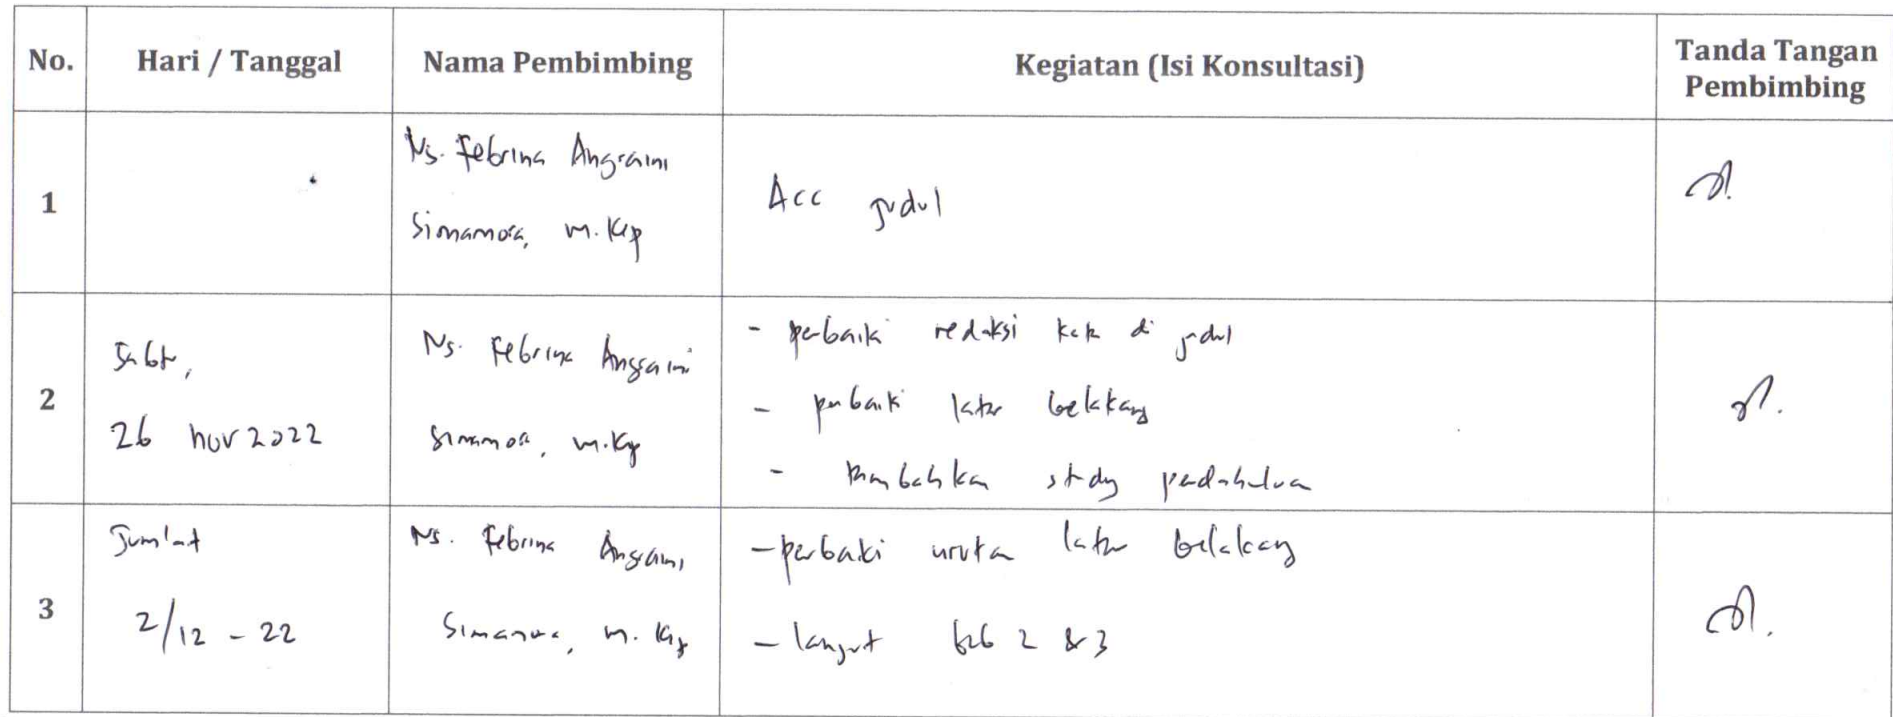 No.
Hari / Tanggal
Nama Pembimbing
Kegiatan (Isi Konsultasi)
Tanda Tangan
Pembimbing
1
Ns. Febrina Angraini
Simamora, M.Kep
Acc judul
2
Sabtu,
26 Nov 2022
Ns. Febrina Anggraini
Simamora, M.Kep
- perbaiki redaksi kata di judul
- perbaiki latar belakang
- tambahkan study pendahuluan
3
Jum'at
2/12 - 22
Ns. Febrina Angraini
Simamora, M.Kep
- perbaiki urutan latar belakang
- lanjut bab 2 & 3